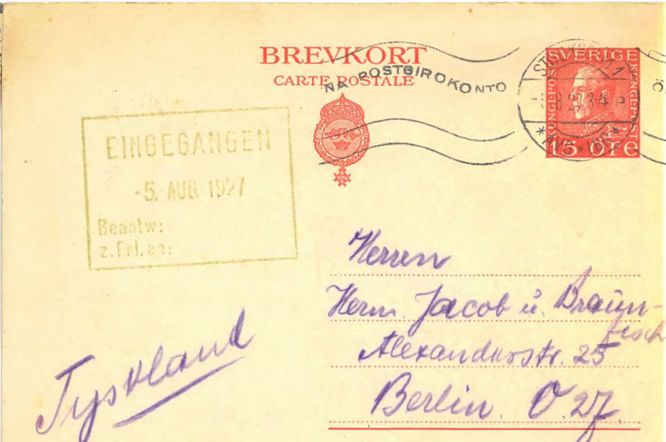 BREVKORT
CARTE POSTALE
NA POSTGIROKONTO
SVERIGE
KUNGEPOST
KUNGEPOST
15 ÖRE
EINGEGANGEN
-5. AUG. 1927
Beantw:
z. Erl. an:
Herren
Herm. Jacob u. Braun-
fisch
Alexanderstr. 25
Berlin. O. 27.
Tyskland